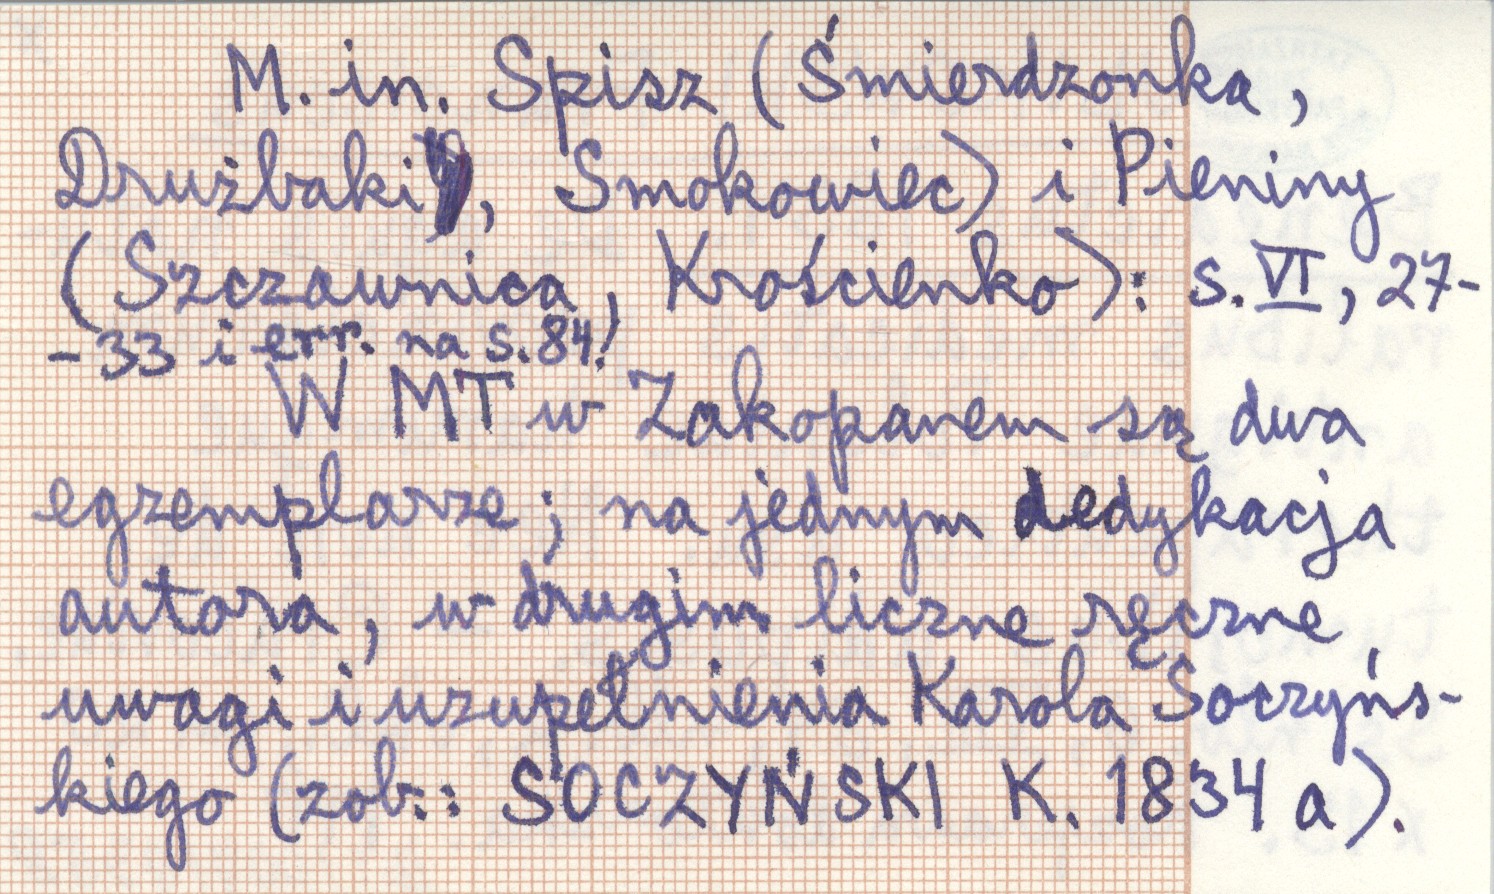 M. in. Spisz (Śmierdzonka,
Drużbaki, Smokowiec) i Pieniny
(Szczawnica, Krościenko): s. VI, 27-
-33 i err. na s. 84!
W MT w Zakopanem są dwa
egzemplarze; na jednym dedykacja
autora, w drugim liczne ręczne
uwagi i uzupełnienia Karola Soczyńs-
kiego (zob.: SOCZYŃSKI K. 1834 a).